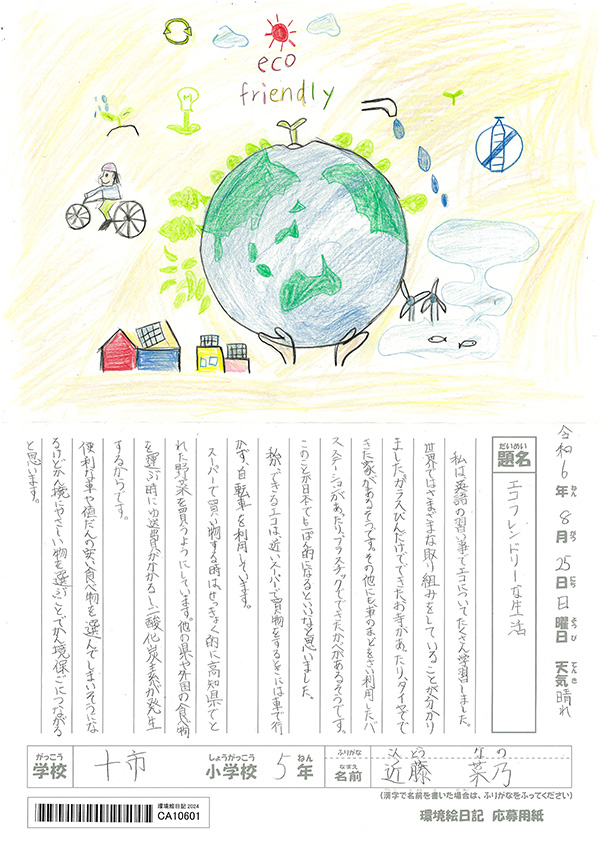 eco
friendly
令和6年8月25日日曜日 天気 晴れ
ねん がつ にち ようび てんき
だいめい
題名
エコフレンドリーな生活
私は英語の習い事でエコについてたくさん学習しました。
世界ではさまざまな取り組みをしていることが分かり
ましたガラスびんだけでできたお寺があったり、タイヤでで
きた家があるそうです。その他にも車のまどをさい利用したバ
スステーションがあったり、プラスチックでできたかべがあるそうです。
このことが日本でも一ぱん的になるといいなと思いました。
私ができるエコは、近いスーパーで買い物をするときには車で行
かず、自転車を利用しています。
スーパーで買い物する時はせっきょく的に高知県でと
れた野菜を買うようにしています。他の県や外国の食べ物
を運ぶ時にゆ送費がかかるし、二酸化炭素が発生
するからです。
便利な車や値だんの安い食べ物を選んでしまいそうにな
るけどかん境にやさしい物を選ぶことでかん境保ごにつながる
と思います。
がっこう
学校
十市
しょうがっこう
小学校
5年
ねん
ふりがな
こんどう なの
なまえ
名前
近藤 菜乃
(漢字で名前を書いた場合は、ふりがなをふってください)
環境絵日記 2024
CA10601
環境絵日記 応募用紙